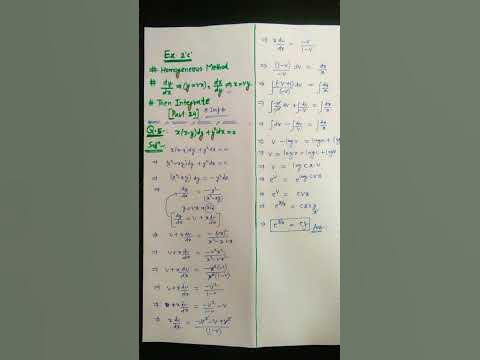 Ex. 2'c'
# Homogeneous Method
# dy/dx ⇒ (y=vx), dx/dy ⇒ x=vy
# Then Integrate
[Part IV] * Imp *
Q.5:- x(x-y)dy + y²dx = 0
Sol:-
x(x-y)dy + y²dx = 0
⇒ (x²-xy)dy + y²dx = 0
⇒ (x²-xy)dy = -y²dx
⇒ dy/dx = -y²/(x²-xy)
y = vx
[dy/dx = v + x dv/dx]
⇒ v + x dv/dx =
⇒ v + x dv/dx = -v²x²/
⇒ v + x dv/dx =
⇒ v + x dv/dx = -v²/(1-v)
⇒ x dv/dx = -v²/(1-v) - v
⇒ x dv/dx = (-v² - v + v²)/(1-v)
⇒ x dv/dx = -v/(1-v)
⇒ (1-v)/-v dv = dx/x
⇒ ∫(-v+1)/-v dv = ∫dx/x
⇒ ∫-v/-v dv + ∫1/-v dv = ∫dx/x
⇒ ∫dv - ∫dv/v = ∫dx/x
⇒ v - log v = log x + log c
⇒ v = log x + log c + log v
⇒ v = log cx.v
⇒ e^v = e^log cvx
⇒ e^v = cvx
⇒ e^y/x = cx y/x
⇒ e^y/x = cy